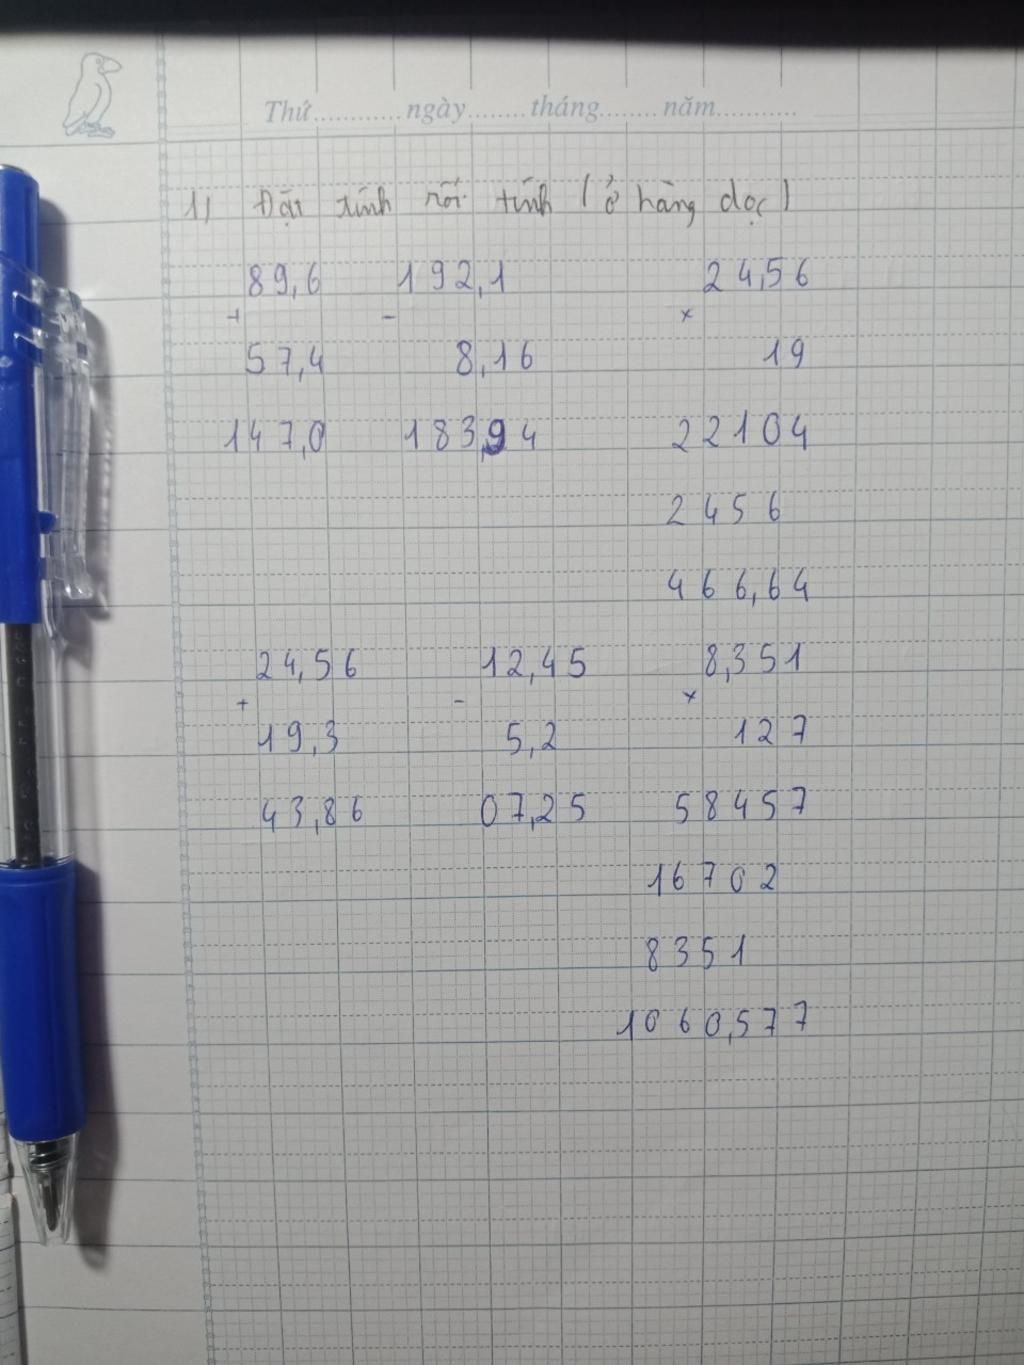 Thứ............ngày........tháng........năm...........
1) Đặt tính rồi tính (ở hàng dọc)
89,6 192,1 24,56
+ - ×
57,4 8,16 19
147,0 183,94 22104
2456
466,64
24,56 12,45 8,351
+ - ×
19,3 5,2 127
43,86 07,25 58457
16702
8351
1060,577